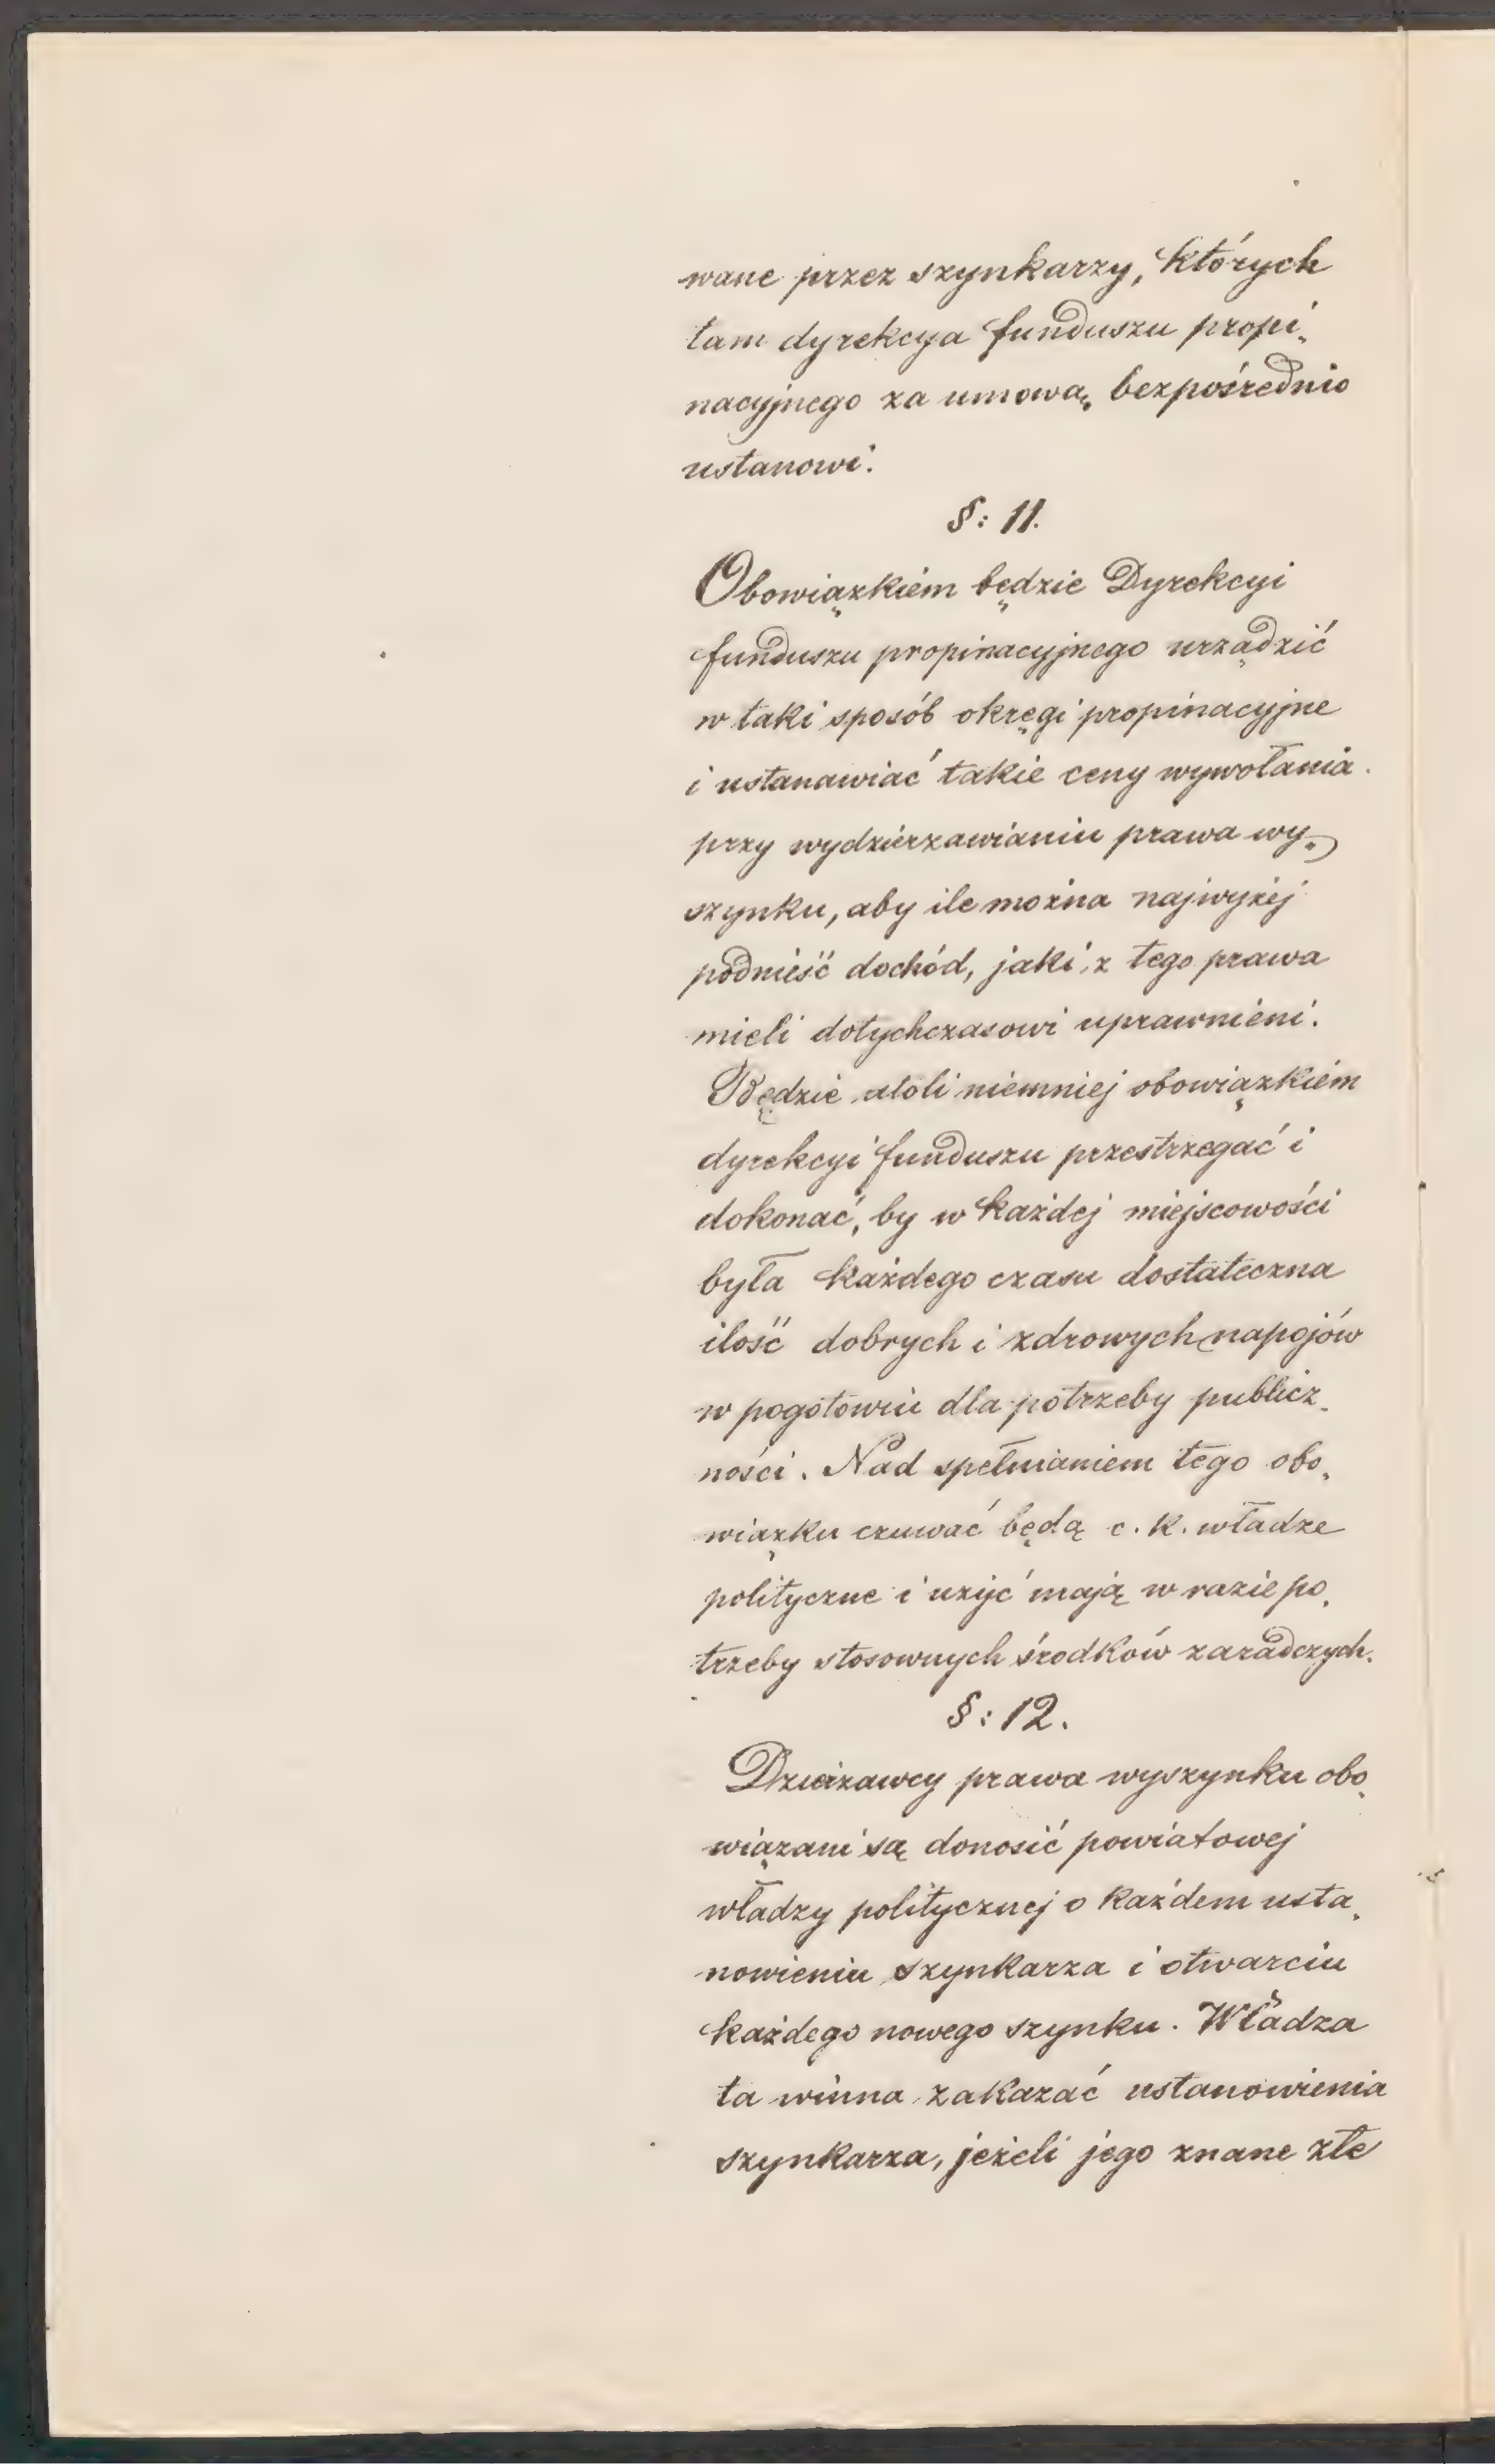 wane przez szynkarzy, których
tam dyrekcya funduszu propi„
nacyjnego za umową bezpośrednio
ustanowi.
§: 11.
Obowiązkiem będzie Dyrekcyi
funduszu propinacyjnego urządzić
w taki sposób okręgi propinacyjne
i ustanawiać takie ceny wywołania
przy wydzierzawianiu prawa wy„
szynku, aby ile można najwyżej
podnieść dochód, jaki z tego prawa
mieli dotychczasowi uprawnieni.
Będzie atoli niemniej obowiązkiem
dyrekcyi funduszu przestrzegać i
dokonać, by w każdej miejscowości
była każdego czasu dostateczna
ilość dobrych i zdrowych napojów
w pogotowiu dla potrzeby publicz„
ności. Nad spełnianiem tego obo„
wiązku czuwać będą c. k. władze
polityczne i użyć mają w razie po„
trzeby stosownych środków zaradczych.
§: 12.
Dzierżawcy prawa wyszynku obo„
wiązani są donosić powiatowej
władzy politycznej o każdem usta„
nowieniu szynkarza i otwarciu
każdego nowego szynku. Władza
ta winna zakazać ustanowienia
szynkarza, jeżeli jego znane złe